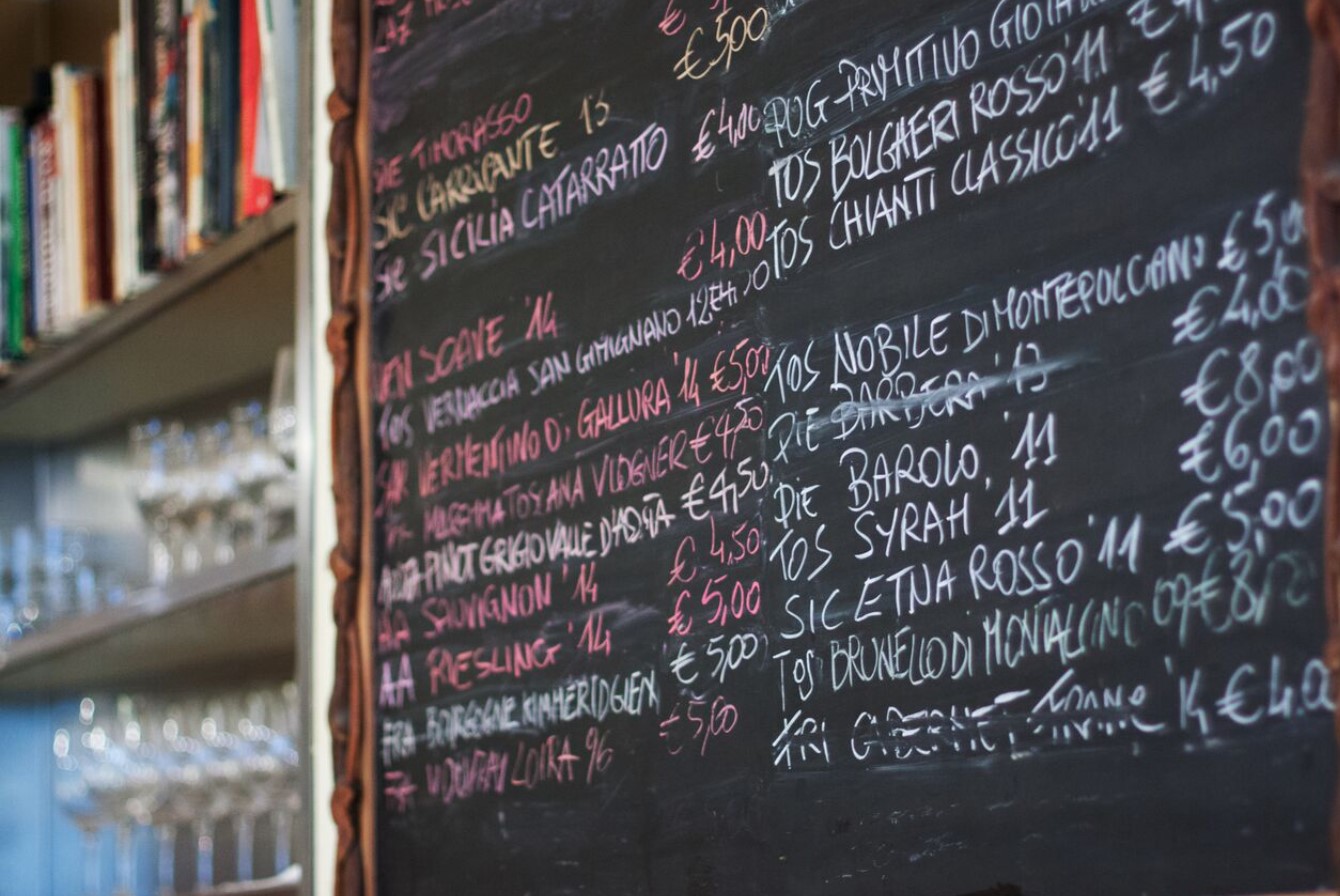 € 5,00
TIMORASSO
SIC CARRIPANTE 13
SIC SICILIA CATARRATTO €4,00
VEN SOAVE '14 €4,00
TOS VERNACCIA SAN GIMIGNANO 12
SAR VERMENTINO DI GALLURA '14 €5,00
MAREMMA TOSCANA VIOGNER €4,50
AOSTA PINOT GRIGIO VALLE D'AOSTA €4,50
AA SAUVIGNON '14 € 4,50
AA RIESLING '14 € 5,00
FRA BOURGOGNE KIMMERIDGIEN € 5,00
LOIRA 96 €5,00
PUG PRIMITIVO
TOS BOLGHERI ROSSO '11
TOS CHIANTI CLASSICO '11 € 4,50
TOS NOBILE DI MONTEPULCIANO €5,00
PIE BARBERA '13 €4,00
PIE BAROLO, '11 €8,00
TOS SYRAH '11 €6,00
SIC ETNA ROSSO '11 €5,00
TOS BRUNELLO DI MONTALCINO 09 €8,
FRI CABERNET FRANC €4,0